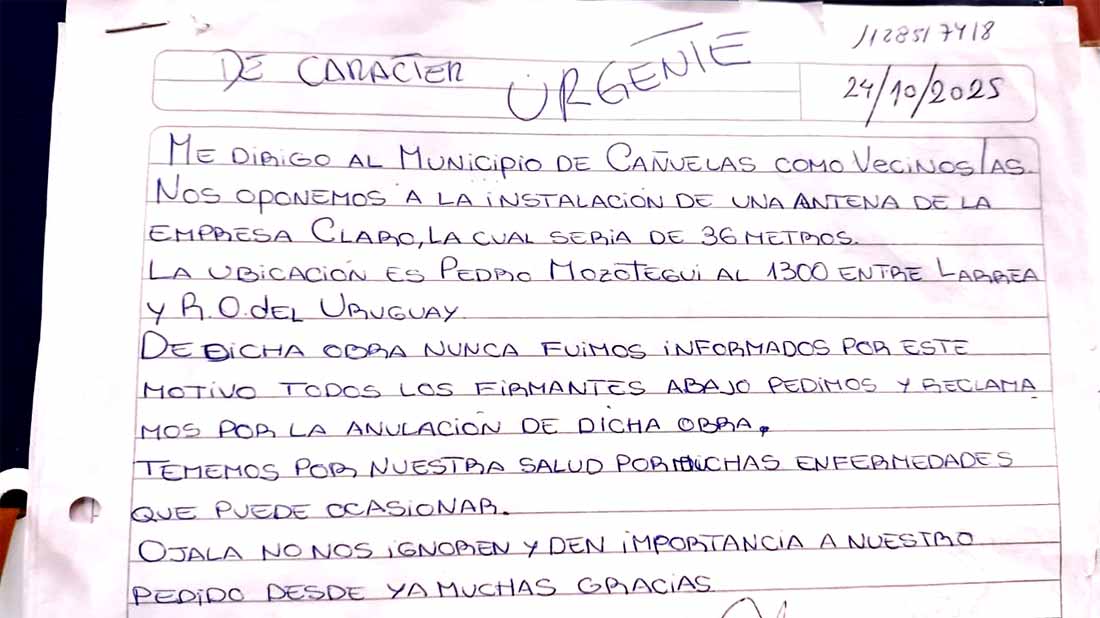 /1285/7418
DE CARACTER URGENTE
24/10/2025
ME DIRIGO AL MUNICIPIO DE CAÑUELAS COMO VECINOS/AS.
NOS OPONEMOS A LA INSTALACIÓN DE UNA ANTENA DE LA
EMPRESA CLARO, LA CUAL SERIA DE 36 METROS.
LA UBICACIÓN ES PEDRO MOZOTEGUI AL 1300 ENTRE LARREA
Y R.O. DEL URUGUAY.
DE DICHA OBRA NUNCA FUIMOS INFORMADOS POR ESTE
MOTIVO TODOS LOS FIRMANTES ABAJO PEDIMOS Y RECLAMA
MOS POR LA ANULACIÓN DE DICHA OBRA.
TEMEMOS POR NUESTRA SALUD POR MUCHAS ENFERMEDADES
QUE PUEDE OCASIONAR.
OJALA NO NOS IGNOREN Y DEN IMPORTANCIA A NUESTRO
PEDIDO DESDE YA MUCHAS GRACIAS